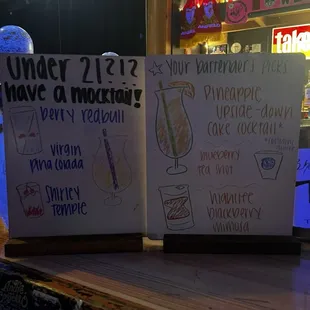 Under 21?!?
have a mocktail!
berry redbull
virgin
pina colada
Shirley
Temple
Your Bartender's Picks
Pineapple
upside-down
cake cocktail*
Huckleberry
tea shot
Midnight
blackberry
mimosa
take